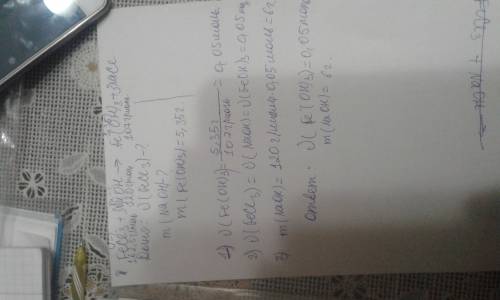 FeCl3 + NaOH → Fe(OH)3 + NaCl
Дано: ν(FeCl3) - ?
m(NaOH) - ?
m(Fe(OH)3) = 5,35г.
1) ν(Fe(OH)3) = 5,35г / 107г/моль = 0,05 моль
2) ν(FeCl3) = ν(NaOH) = ν(Fe(OH)3) = 0,05 моль
3) m(NaOH) = 120г/моль · 0,05 моль = 6г.
Ответ: ν(Fe(OH)3) = 0,05 моль
m(NaOH) = 6г.
FeCl3 + NaOH